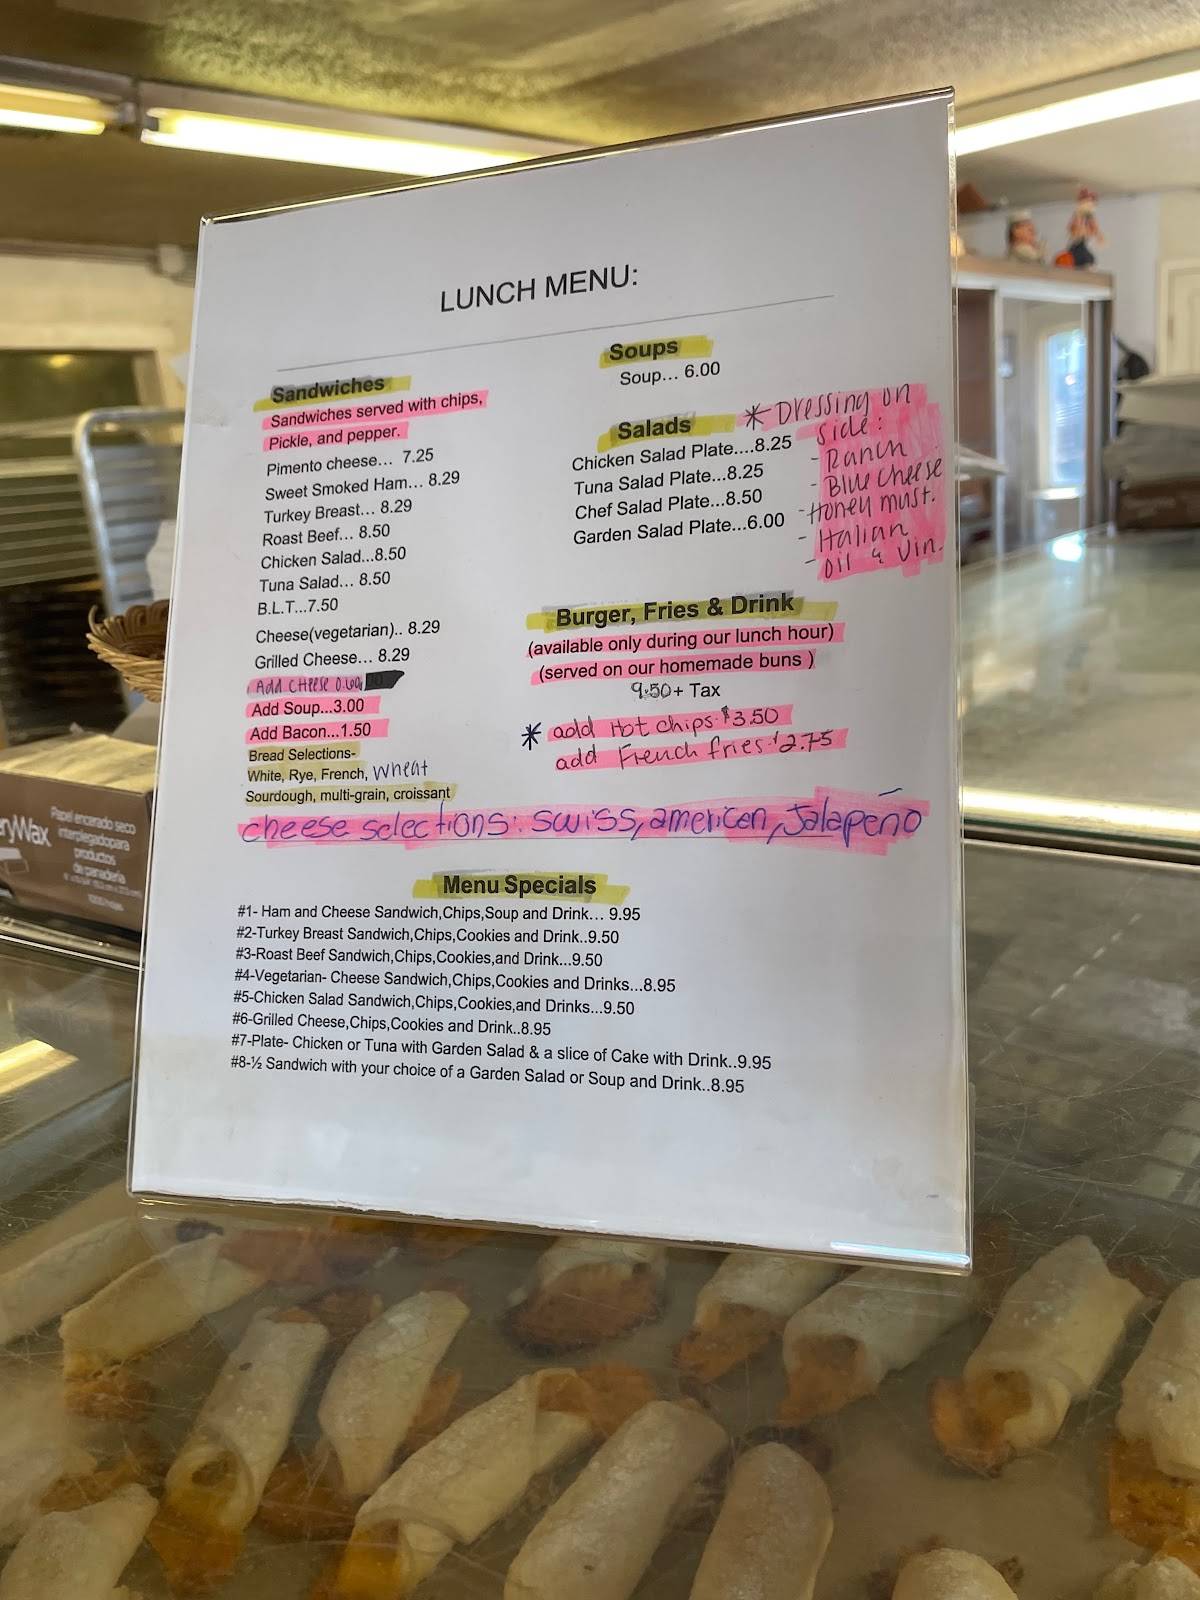 LUNCH MENU:
Sandwiches
Sandwiches served with chips,
Pickle, and pepper.
Pimento cheese... 7.25
Sweet Smoked Ham... 8.29
Turkey Breast... 8.29
Roast Beef... 8.50
Chicken Salad...8.50
Tuna Salad... 8.50
B.L.T...7.50
Cheese(vegetarian).. 8.29
Grilled Cheese... 8.29
Add cheese 0.60
Add Soup...3.00
Add Bacon...1.50
Bread Selections-
White, Rye, French, wheat
Sourdough, multi-grain, croissant
Soups
Soup... 6.00
Salads
Chicken Salad Plate....8.25
Tuna Salad Plate...8.25
Chef Salad Plate...8.50
Garden Salad Plate...6.00
* Dressing on
side:
- Ranch
- Blue Cheese
- Honey must.
- Italian
- Oil & Vin.
Burger, Fries & Drink
(available only during our lunch hour)
(served on our homemade buns )
9.50+ Tax
* add Hot chips $3.50
add French fries $2.75
cheese selections: swiss, american, Jalapeño
Menu Specials
#1- Ham and Cheese Sandwich,Chips,Soup and Drink... 9.95
#2-Turkey Breast Sandwich,Chips,Cookies and Drink..9.50
#3-Roast Beef Sandwich,Chips,Cookies,and Drink...9.50
#4-Vegetarian- Cheese Sandwich,Chips,Cookies and Drinks...8.95
#5-Chicken Salad Sandwich,Chips,Cookies,and Drinks...9.50
#6-Grilled Cheese,Chips,Cookies and Drink..8.95
#7-Plate- Chicken or Tuna with Garden Salad & a slice of Cake with Drink..9.95
#8-½ Sandwich with your choice of a Garden Salad or Soup and Drink..8.95
Wax
Papel encerado seco
interplegado para
productos
de panadería